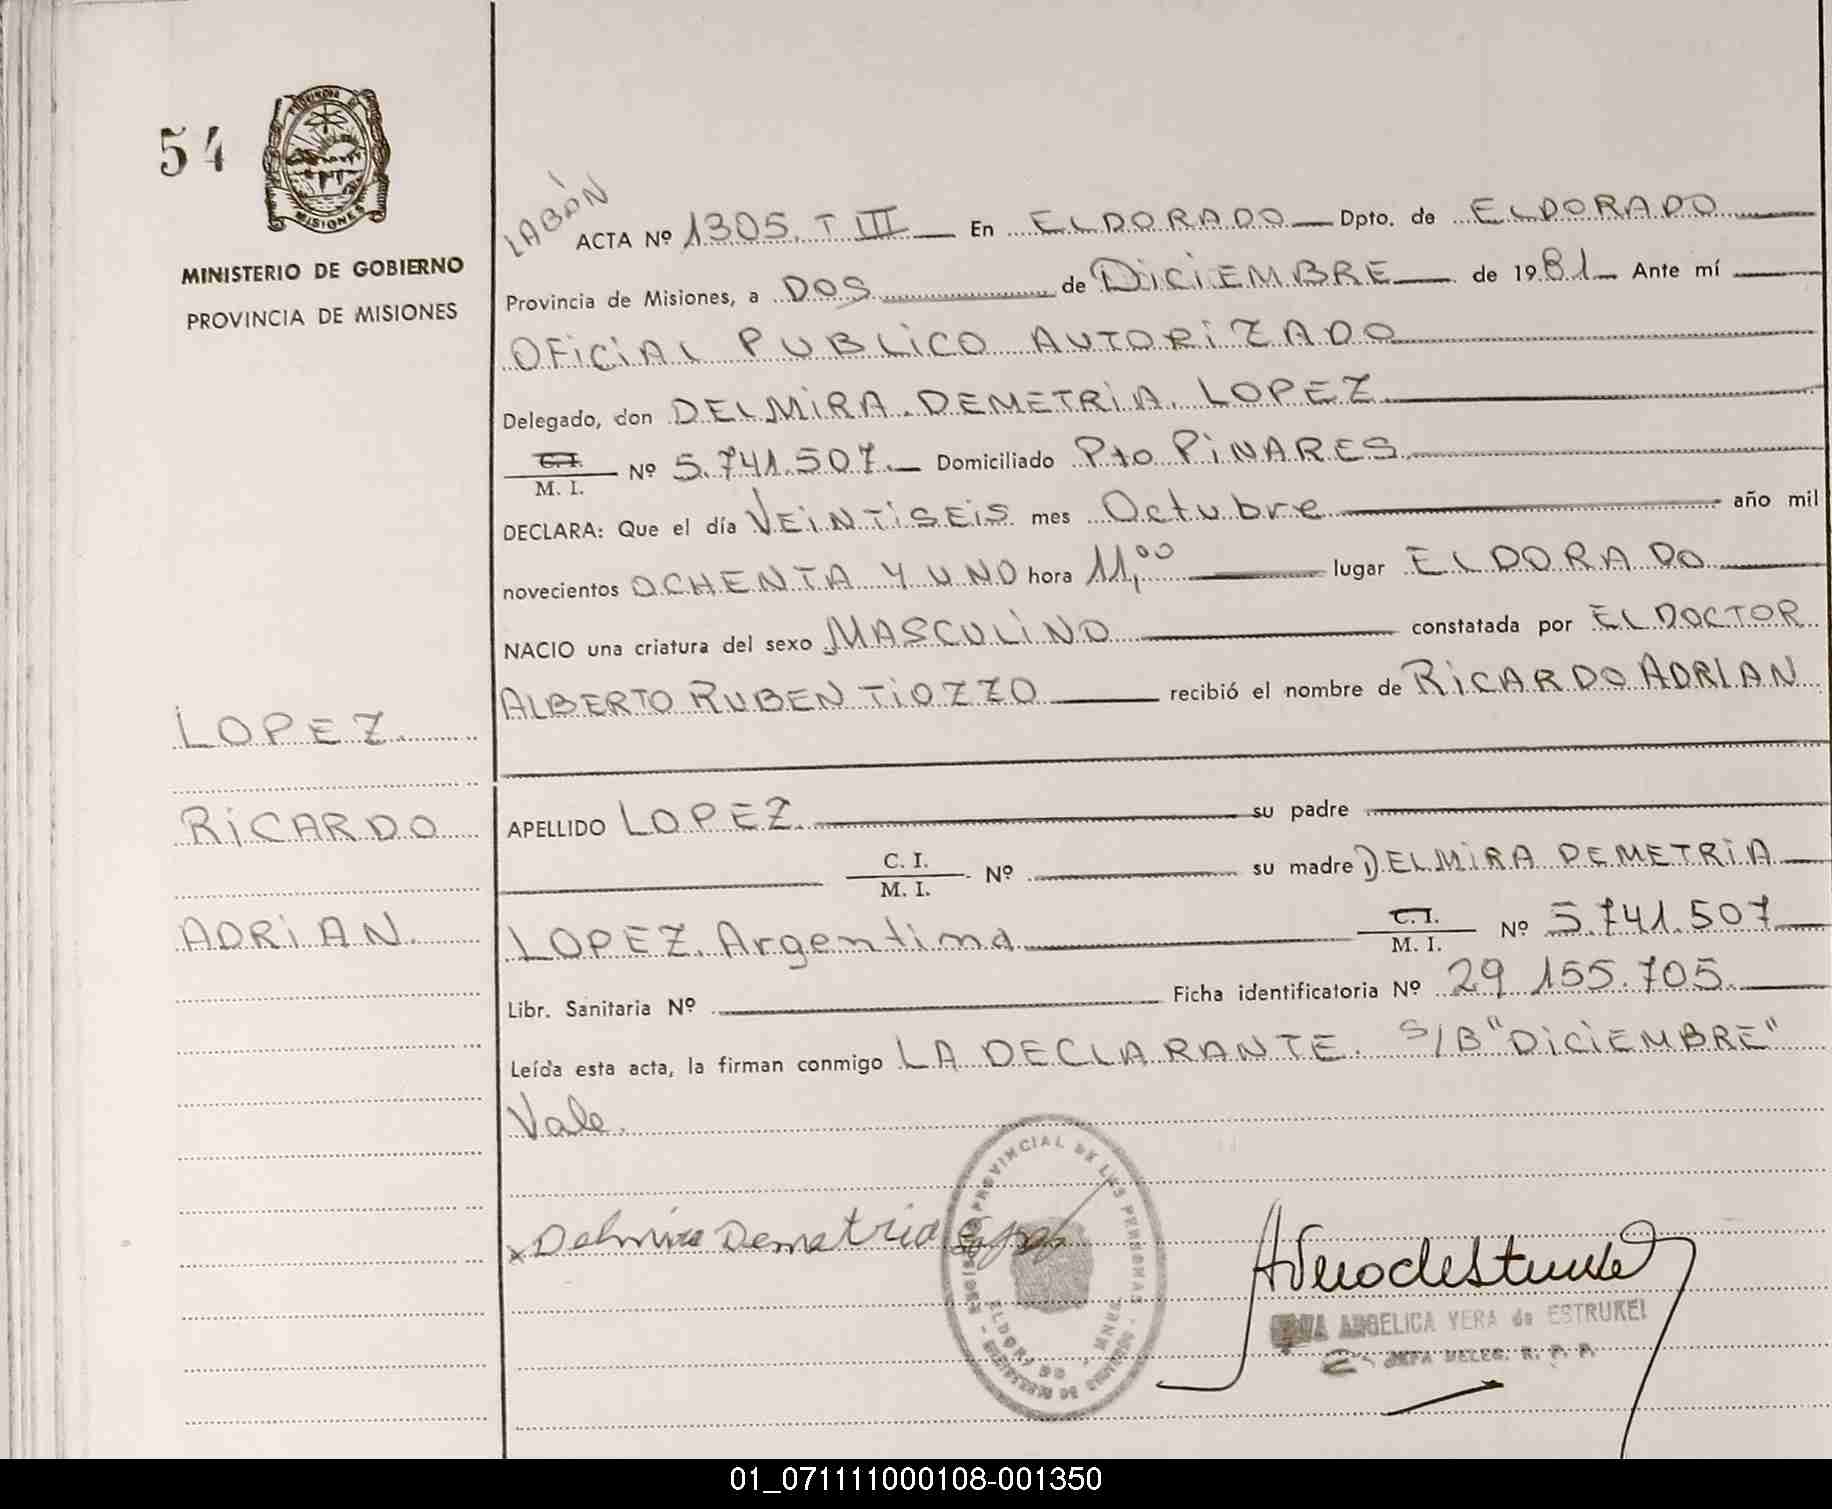 54
PROVINCIA DE
MISIONES
MINISTERIO DE GOBIERNO
PROVINCIA DE MISIONES
LOPEZ
RICARDO
ADRIAN
LABÓN
ACTA Nº 1305. T III En ELDORADO Dpto. de ELDORADO
Provincia de Misiones, a DOS de DICIEMBRE de 1981 Ante mí
OFICIAL PUBLICO AUTORIZADO
Delegado, don DELMIRA DEMETRIA LOPEZ
C. I.
M. I. Nº 5.741.507. Domiciliado Pto PINARES
DECLARA: Que el día VEINTISEIS mes Octubre año mil
novecientos OCHENTA Y UNO hora 11,00 lugar ELDORADO
NACIO una criatura del sexo MASCULINO constatada por EL DOCTOR
ALBERTO RUBEN TIOZZO recibió el nombre de RICARDO ADRIAN
APELLIDO LOPEZ su padre
C. I.
M. I. Nº su madre DELMIRA DEMETRIA
LOPEZ. Argentina C. I.
M. I. Nº 5.741.507
Libr. Sanitaria Nº Ficha identificatoria Nº 29 155.705
Leída esta acta, la firman conmigo LA DECLARANTE. S/B "DICIEMBRE"
Vale.
x Delmira Demetria
PROVINCIAL DE LAS PERSONAS
ELDORADO - MNES
ANGELICA VERA de ESTRUKEL
JEFA DELEG. R. P. P.
01_071111000108-001350